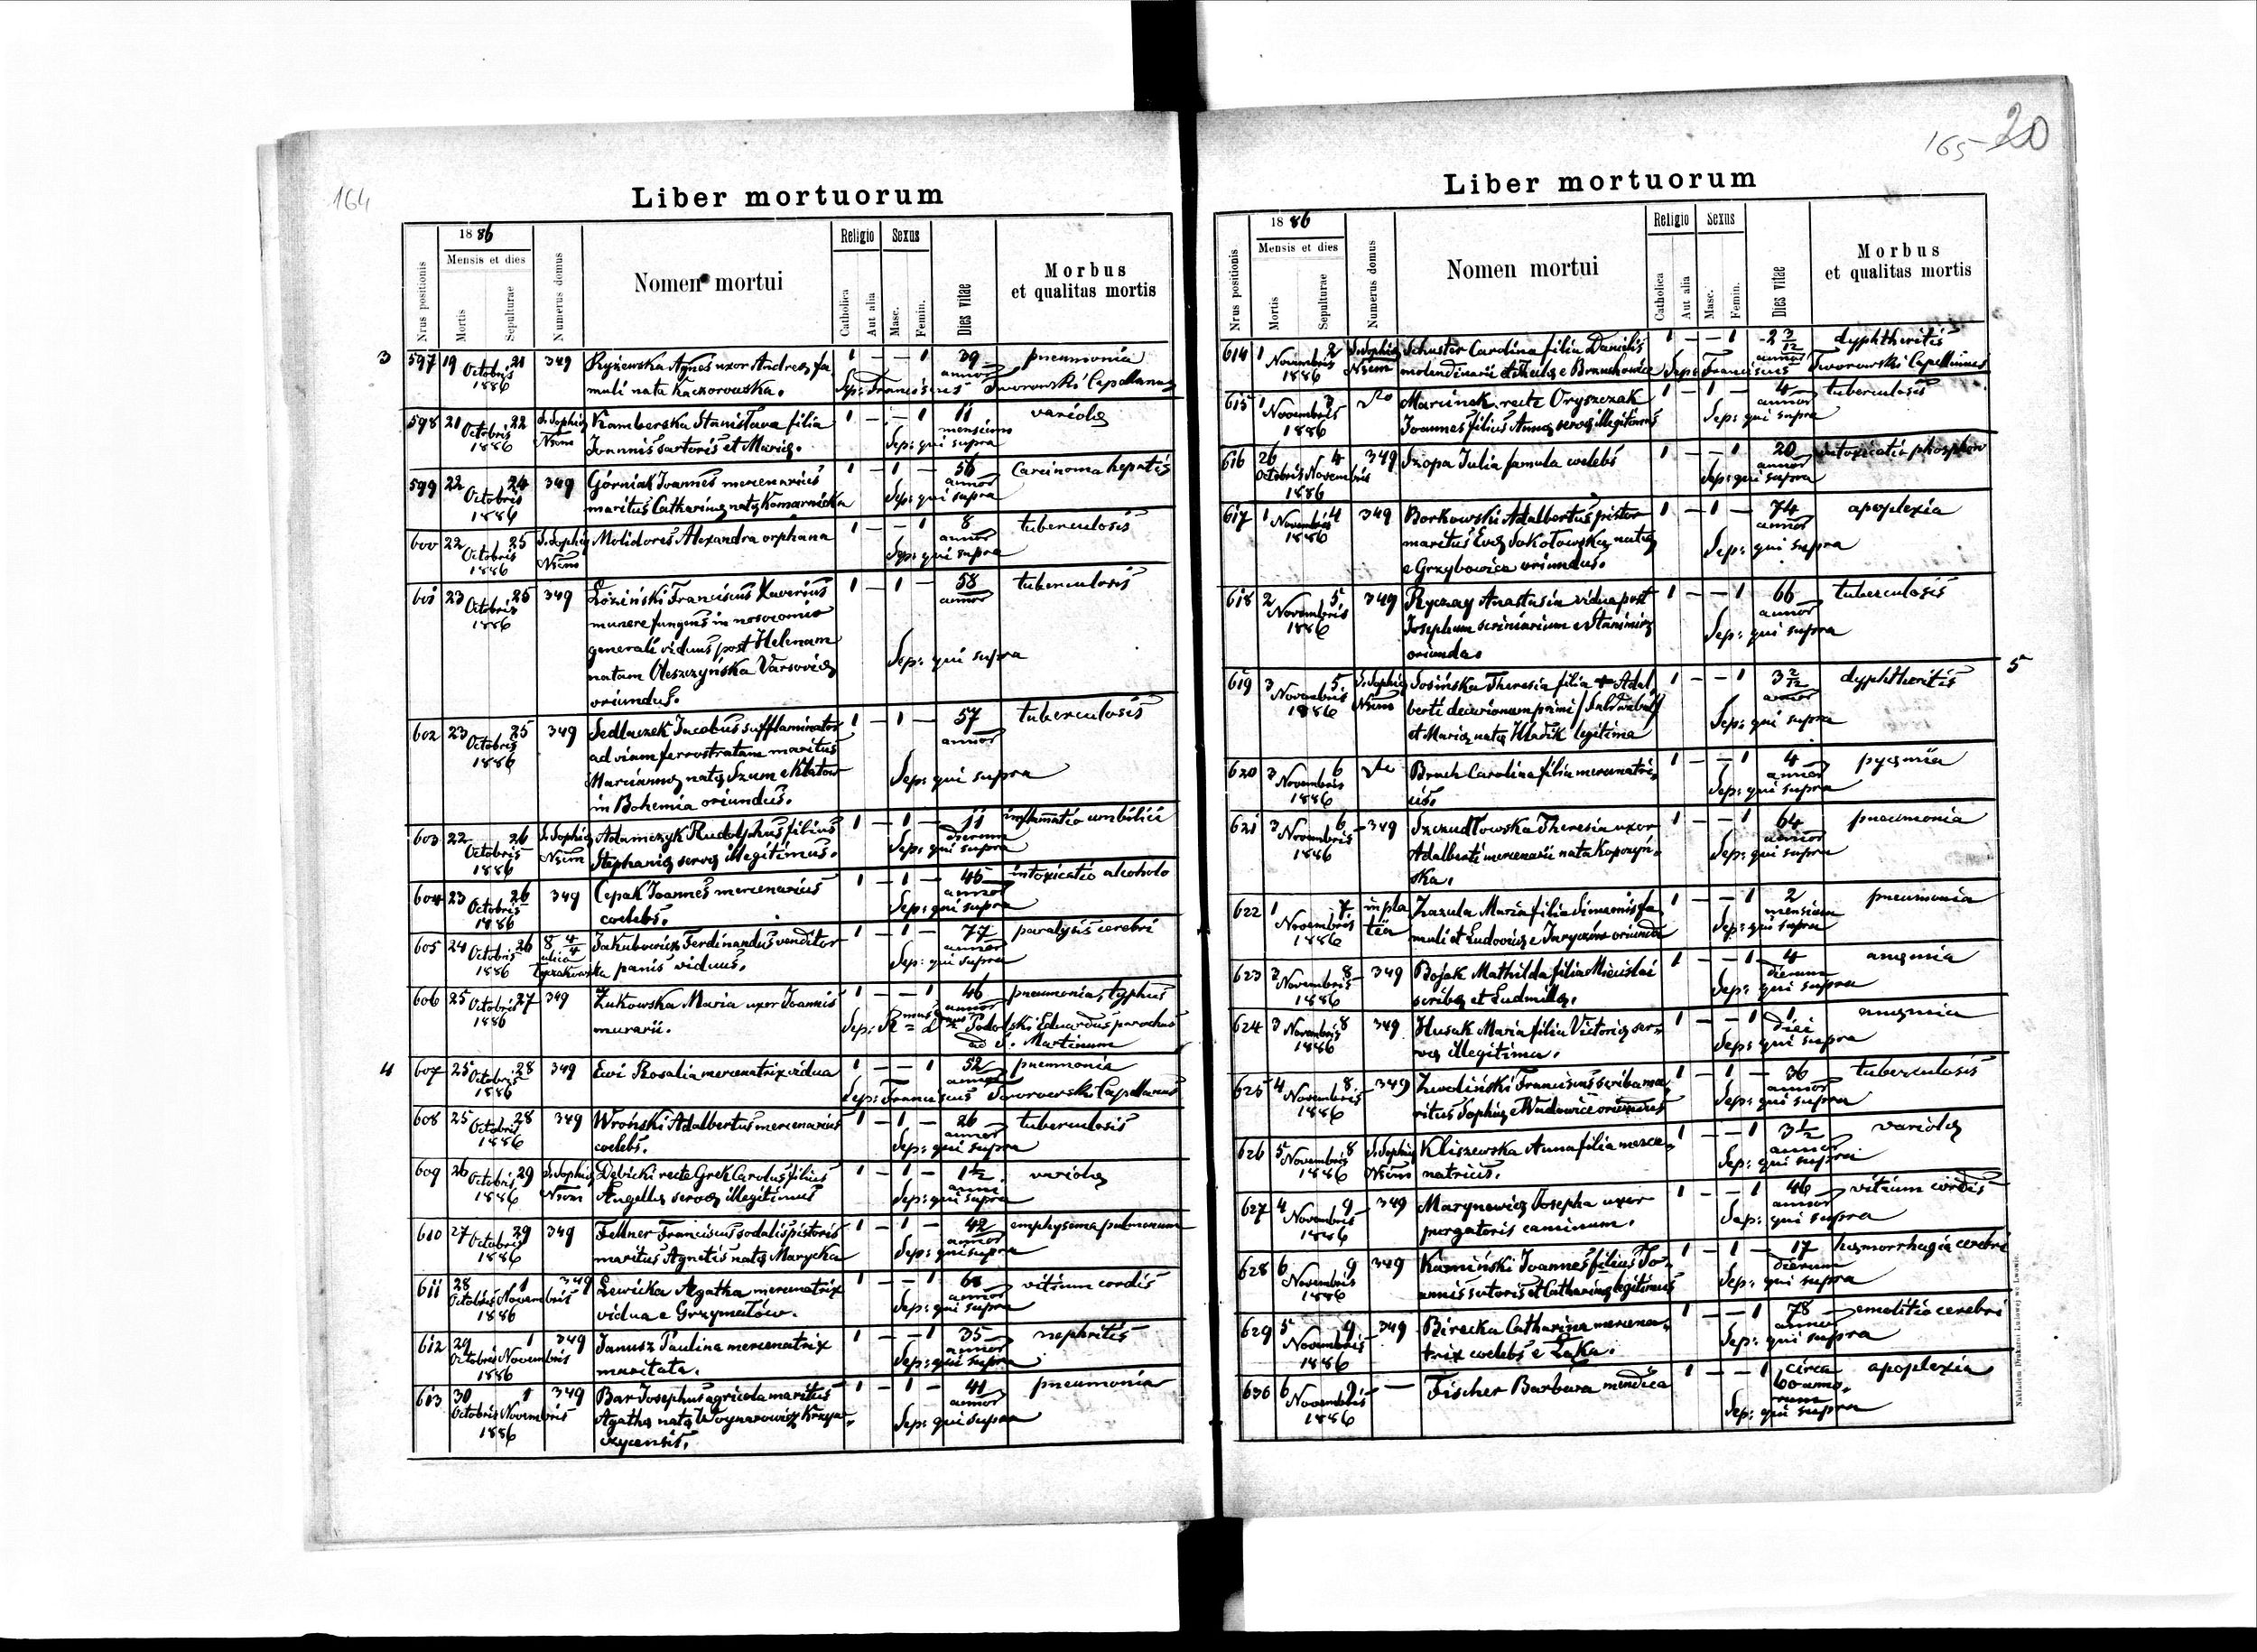 164
Liber mortuorum
Nrus positionis
1886
Mensis et dies
Mortis
Sepulturae
Numerus domus
Nomen mortui
Religio
Catholica
Aut alia
Sexus
Masc.
Femin.
Dies vitae
Morbus
et qualitas mortis
3 597 19 21 349 Ryżewska Agnes uxor Andreæ fa 1 — — 1 39 pneumonia
Octobris annor
1886 muli nata Kaczorowska. Sep: Franciscus Dworowski Capellanus
598 21 22 S. Sophiæ Kamberska Stanisława filia 1 — — 1 11 variolæ
Octobris mensium
1886 Nrom Joannis sartoris et Mariæ. Sep: qui supra
599 22 24 349 Górniak Joannes mercenarius 1 — 1 — 56 Carcinoma hepatis
Octobris annor
1886 maritus Catharinæ natæ Komarnicka Sep: qui supra
600 22 25 S. Sophiæ Molidores Alexandra orphana 1 — — 1 8 tuberculosis
Octobris annor
1886 Nrom Sep: qui supra
601 23 25 349 Łoziński Franciscus Xaverius 1 — 1 — 58 tuberculosis
Octobris annor
1886 munere fungens in nosocomio
generali viduus post Helenam
natam Oleszczyńska Varsoviæ Sep: qui supra
oriundus.
602 23 25 349 Sedlaczek Jacobus sufflaminator 1 — 1 — 57 tuberculosis
Octobris annor
1886 ad viam ferrostratam maritus
Mariannæ natæ Szum e Klatow Sep: qui supra
in Bohemia oriundus.
603 22 26 S. Sophiæ Adamczyk Rudolphus filius 1 — 1 — 11 inflamatio umbilici
Octobris dierum
1886 Nrom Stephaniæ servæ illegitimus. Sep: qui supra
604 23 26 349 Cepak Joannes mercenarius 1 — 1 — 45 intoxicatio alcoholo
Octobris annor
1886 coelebs. Sep: qui supra
605 24 26 8 4/4 Jakubowicz Ferdinandus venditor 1 — 1 — 77 paralysis cerebri
Octobris ulica annor
1886 Łyczakowska panis viduus. Sep: qui supra
606 25 27 349 Żukowska Maria uxor Joannis 1 — — 1 46 pneumonia, typhus
Octobris annor
1886 murarii. Sep: Podolski Eduardus parochus
ad S. Martinum
4 607 25 28 349 Ewi Rosalia mercenatrix vidua 1 — — 1 52 pneumonia
Octobris annor
1886 Sep: Franciscus Dworowski Capellanus
608 25 28 349 Wroński Adalbertus mercenarius 1 — 1 — 26 tuberculosis
Octobris annor
1886 coelebs. Sep: qui supra
609 26 29 S. Sophiæ Dębicki recte Grek Carolus filius 1 — 1 — 1½ variolæ
Octobris anni
1886 Nrom Angellæ servæ illegitimus Sep: qui supra
610 27 29 349 Fellner Franciscus sodalis pistoris 1 — 1 — 42 emphysema pulmonum
Octobris annor
1886 maritus Agnetis natæ Marycka Sep: qui supra
611 28 1 349 Lewicka Agatha mercenatrix 1 — — 1 68 vitium cordis
Octobris Novembris annor
1886 vidua e Grzymałów. Sep: qui supra
612 29 1 349 Janusz Paulina mercenatrix 1 — — 1 35 nephritis
Octobris Novembris annor
1886 maritata. Sep: qui supra
613 30 1 349 Bar Josephus agricola maritus 1 — 1 — 41 pneumonia
Octobris Novembris annor
1886 Agathæ natæ Woynarowicz Sep: qui supra
165 20
Liber mortuorum
Nrus positionis
1886
Mensis et dies
Mortis
Sepulturae
Numerus domus
Nomen mortui
Religio
Catholica
Aut alia
Sexus
Masc.
Femin.
Dies vitae
Morbus
et qualitas mortis
614 1 2 S. Sophiæ Schuster Carolina filia Danielis 1 — — 1 2 3/12 dyphtheritis
Novembris annor
1886 Nrom molendinarii et Theklæ e Brzuchowice Sep: Franciscus Dworowski Capellanus
615 1 3 dto Marcinek recte Oryszczak 1 — 1 — 4 tuberculosis
Novembris annor
1886 Joannes filius Annæ servæ illegitimus Sep: qui supra
616 26 4 349 Szopa Julia famula coelebs 1 — — 1 20 intoxicatio phosphoro
Octobris Novembris annor
1886 Sep: qui supra
617 1 4 349 Borkowski Adalbertus pistor 1 — 1 — 74 apoplexia
Novembris annor
1886 maritus Evæ Sokołowska natæ Sep: qui supra
e Grzybowice oriundus.
618 2 5 349 Ryczay Anastasia vidua post 1 — — 1 66 tuberculosis
Novembris annor
1886 Josephum scriniarium e Stanimirz Sep: qui supra
oriunda.
619 3 5 S. Sophiæ Sosińska Theresia filia Adal 1 — — 1 3 2/12 dyphtheritis 5
Novembris annor
1886 Nrom berti decurionum primi
et Mariæ natæ Hladik legitima Sep: qui supra
620 3 6 dto Bruch Carolina filia mercenatri 1 — — 1 4 pyæmia
Novembris annor
1886 cis. Sep: qui supra
621 3 6 349 Szczudłowska Theresia uxor 1 — — 1 64 pneumonia
Novembris annor
1886 Adalberti mercenarii nata Kopczyń- Sep: qui supra
ska.
622 1 7 in pla Zazula Maria filia Simeonis fa 1 — — 1 2 pneumonia
Novembris tea mensium
1886 muli et Ludovicæ e Jaryczów oriunda Sep: qui supra
623 2 8 349 Bojak Mathilda filia Miecislai 1 — — 1 4 anæmia
Novembris dierum
1886 scribæ et Ludmillæ. Sep: qui supra
624 3 8 349 Husak Maria filia Victoriæ ser- 1 — — 1 1 anæmia
Novembris diei
1886 væ illegitima. Sep: qui supra
625 4 8 349 Zwoliński Franciscus scriba ma 1 — 1 — 36 tuberculosis
Novembris annor
1886 ritus Sophiæ e Wadowice oriundus Sep: qui supra
626 5 8 S. Sophiæ Kliszewska Anna filia merce- 1 — — 1 3½ variolæ
Novembris annor
1886 Nrom natricis. Sep: qui supra
627 4 9 349 Marynowicz Josepha uxor 1 — — 1 46 vitium cordis
Novembris annor
1886 purgatoris caminum. Sep: qui supra
628 6 9 349 Kamiński Joannes filius Jo- 1 — 1 — 17 hæmorrhagia cerebri
Novembris dierum
1886 annis sutoris et Catharinæ legitimus Sep: qui supra
629 5 9 349 Birecka Catharina mercena- 1 — — 1 78 emolitio cerebri
Novembris annor
1886 trix coelebs e Łąka. Sep: qui supra
630 6 9 — Fischer Barbara mendica 1 — — 1 circa apoplexia
Novembris 60 anno-
1886 rum
Sep: qui supra
Nakładem Drukarni Ludowej we Lwowie.